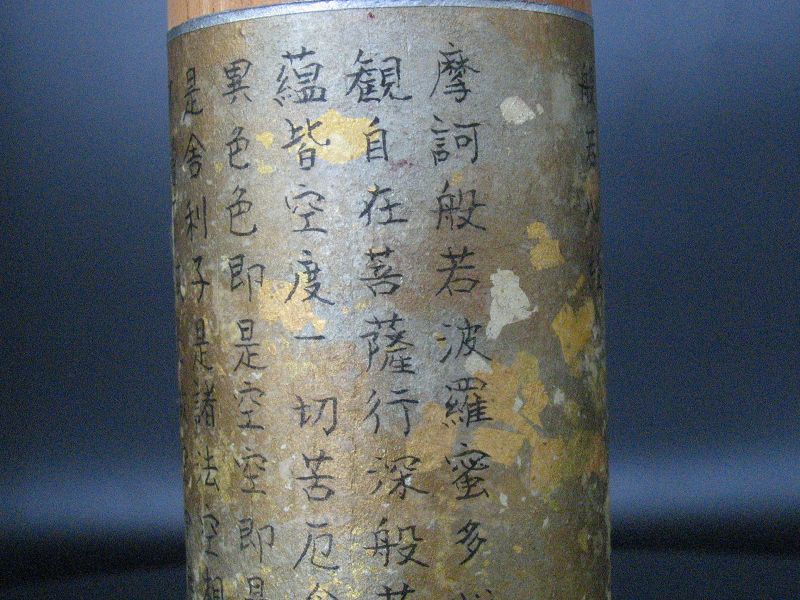 摩訶般若波羅蜜多
観自在菩薩行深般若
蘊皆空度一切苦厄舎
異色色即是空空即是
是舎利子是諸法空相
般若